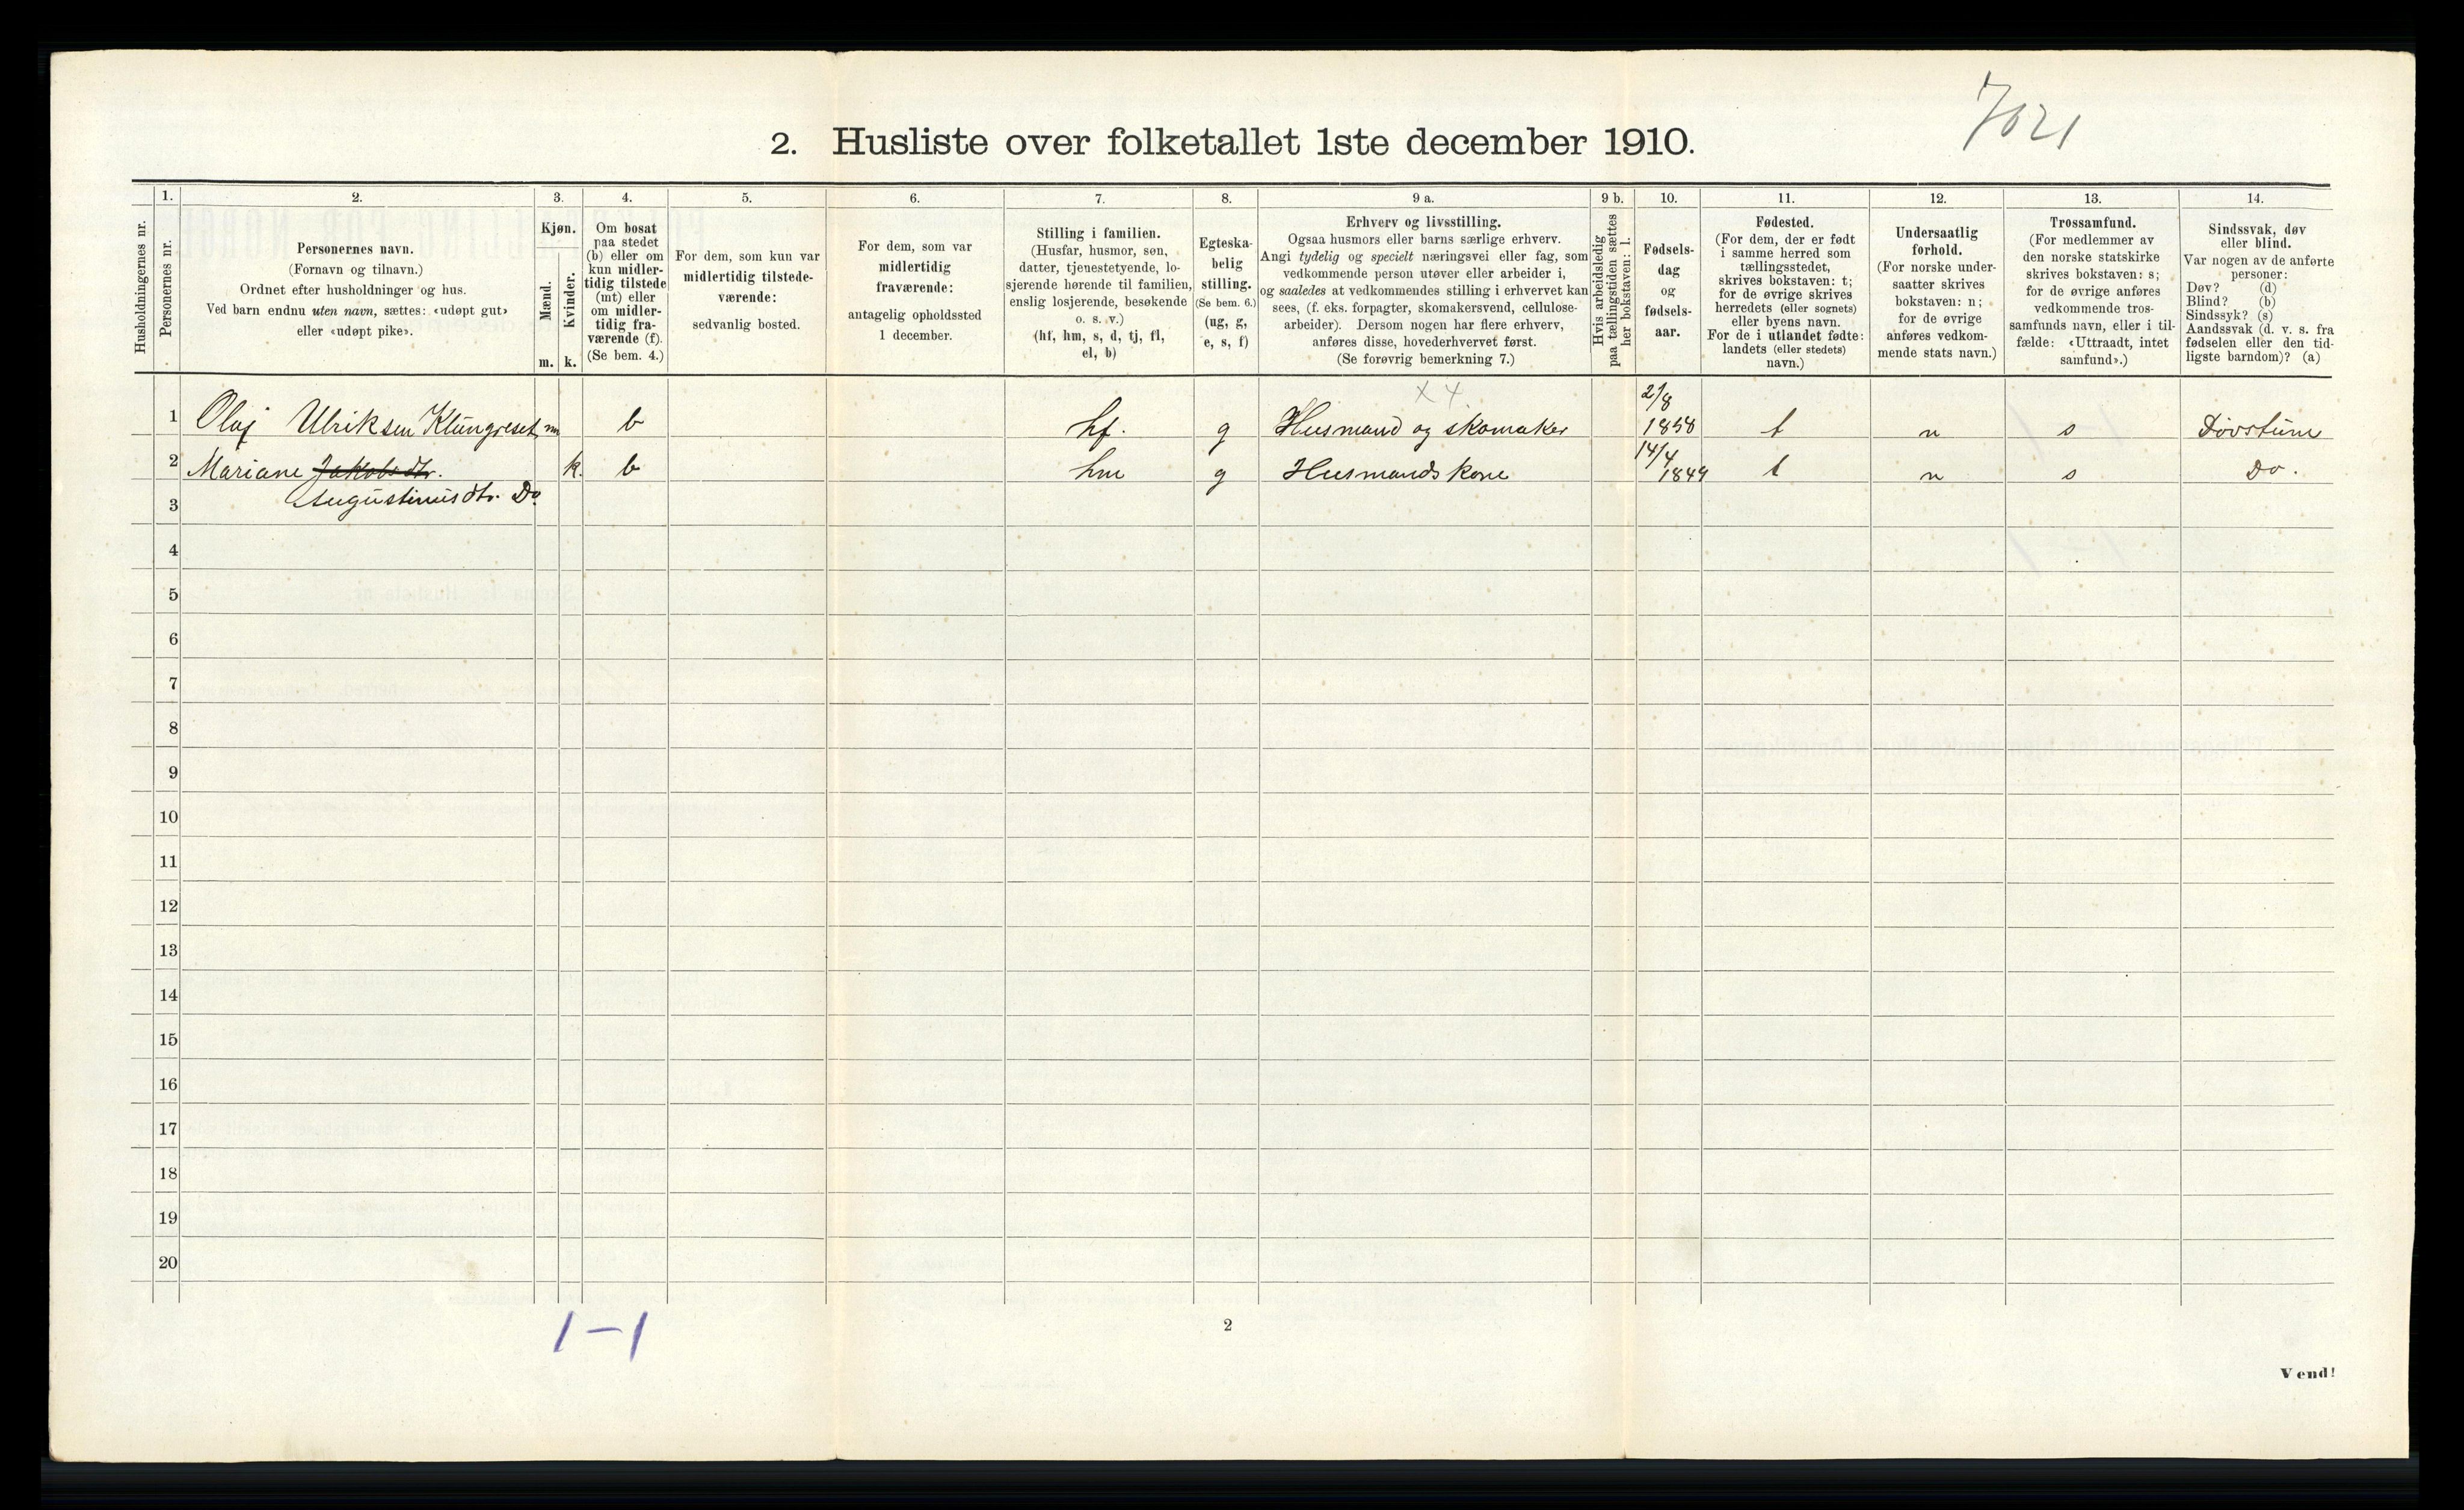 7021
2. Husliste over folketallet 1ste december 1910.
Husholdningernes nr.
1.
Personernes nr.
2.
Personernes navn.
(Fornavn og tilnavn.)
Ordnet efter husholdninger og hus.
Ved barn endnu uten navn, sættes: «udøpt gut»
eller «udøpt pike».
3.
Kjøn.
Mænd.
Kvinder.
m. k.
4.
Om bosat
paa stedet
(b) eller om
kun midler-
tidig tilstede
(mt) eller
om midler-
tidig fra-
værende (f).
(Se bem. 4.)
5.
For dem, som kun var
midlertidig tilstede-
værende:
sedvanlig bosted.
6.
For dem, som var
midlertidig
fraværende:
antagelig opholdssted
1 december.
7.
Stilling i familien.
(Husfar, husmor, søn,
datter, tjenestetyende, lo-
sjerende hørende til familien,
enslig losjerende, besøkende
o. s. v.)
(hf, hm, s, d, tj, fl,
el, b)
8.
Egteska-
belig
stilling.
(Se bem. 6.)
(ug, g,
e, s, f)
9 a.
Erhverv og livsstilling.
Ogsaa husmors eller barns særlige erhverv.
Angi tydelig og specielt næringsvei eller fag, som
vedkommende person utøver eller arbeider i,
og saaledes at vedkommendes stilling i erhvervet kan
sees, (f. eks. forpagter, skomakersvend, cellulose-
arbeider). Dersom nogen har flere erhverv,
anføres disse, hovederhvervet først.
(Se forøvrig bemerkning 7.)
9 b.
Hvis arbeidsledig
paa tællingstiden sættes
her bokstaven: l.
10.
Fødsels-
dag
og
fødsels-
aar.
11.
Fødested.
(For dem, der er født
i samme herred som
tællingsstedet,
skrives bokstaven: t;
for de øvrige skrives
herredets (eller sognets)
eller byens navn.
For de i utlandet fødte:
landets (eller stedets)
navn.)
12.
Undersaatlig
forhold.
(For norske under-
saatter skrives
bokstaven: n;
for de øvrige
anføres vedkom-
mende stats navn.)
13.
Trossamfund.
(For medlemmer av
den norske statskirke
skrives bokstaven: s;
for de øvrige anføres
vedkommende tros-
samfunds navn, eller i til-
fælde: «Uttraadt, intet
samfund».)
14.
Sindssvak, døv
eller blind.
Var nogen av de anførte
personer:
Døv? (d)
Blind? (b)
Sindssyk? (s)
Aandssvak (d. v. s. fra
fødselen eller den tid-
ligste barndom)? (a)
x 4
1 Olaf Ulriksen Klungreset m b hf. g Husmand og skomaker 2/8 1858 t n s Døvstum
2 Mariane Jakobsdtr. k. b hm g Husmandskone 14/4 1849 t n s Do.
3 Augustinusdtr. Do.
4
5
6
7
8
9
10
11
12
13
14
15
16
17
18
19
20
1-1
2
Vend!